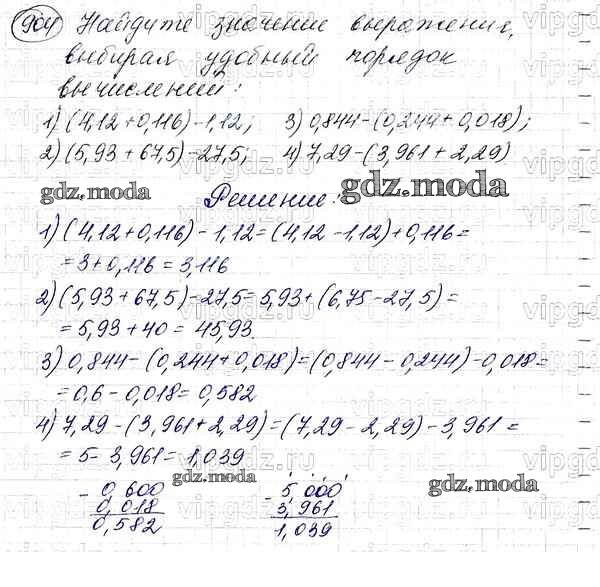 904 Найдите значение выражения,
выбирая удобный порядок
вычислений:
1) (4,12+0,116)-1,12; 3) 0,844-(0,244+0,018);
2) (5,93+67,5)-27,5; 4) 7,29-(3,961+2,29)
gdz.moda Решение: gdz.moda
1) (4,12+0,116)-1,12=(4,12-1,12)+0,116=
=3+0,116=3,116
2) (5,93+67,5)-27,5=5,93+(6,75-27,5)=
=5,93+40=45,93.
3) 0,844-(0,244+0,018)=(0,844-0,244)-0,018=
=0,6-0,018=0,582
4) 7,29-(3,961+2,29)=(7,29-2,29)-3,961=
=5-3,961=1,039
gdz.moda gdz.moda
-0,600 -5,000
0,018 3,961
0,582 1,039